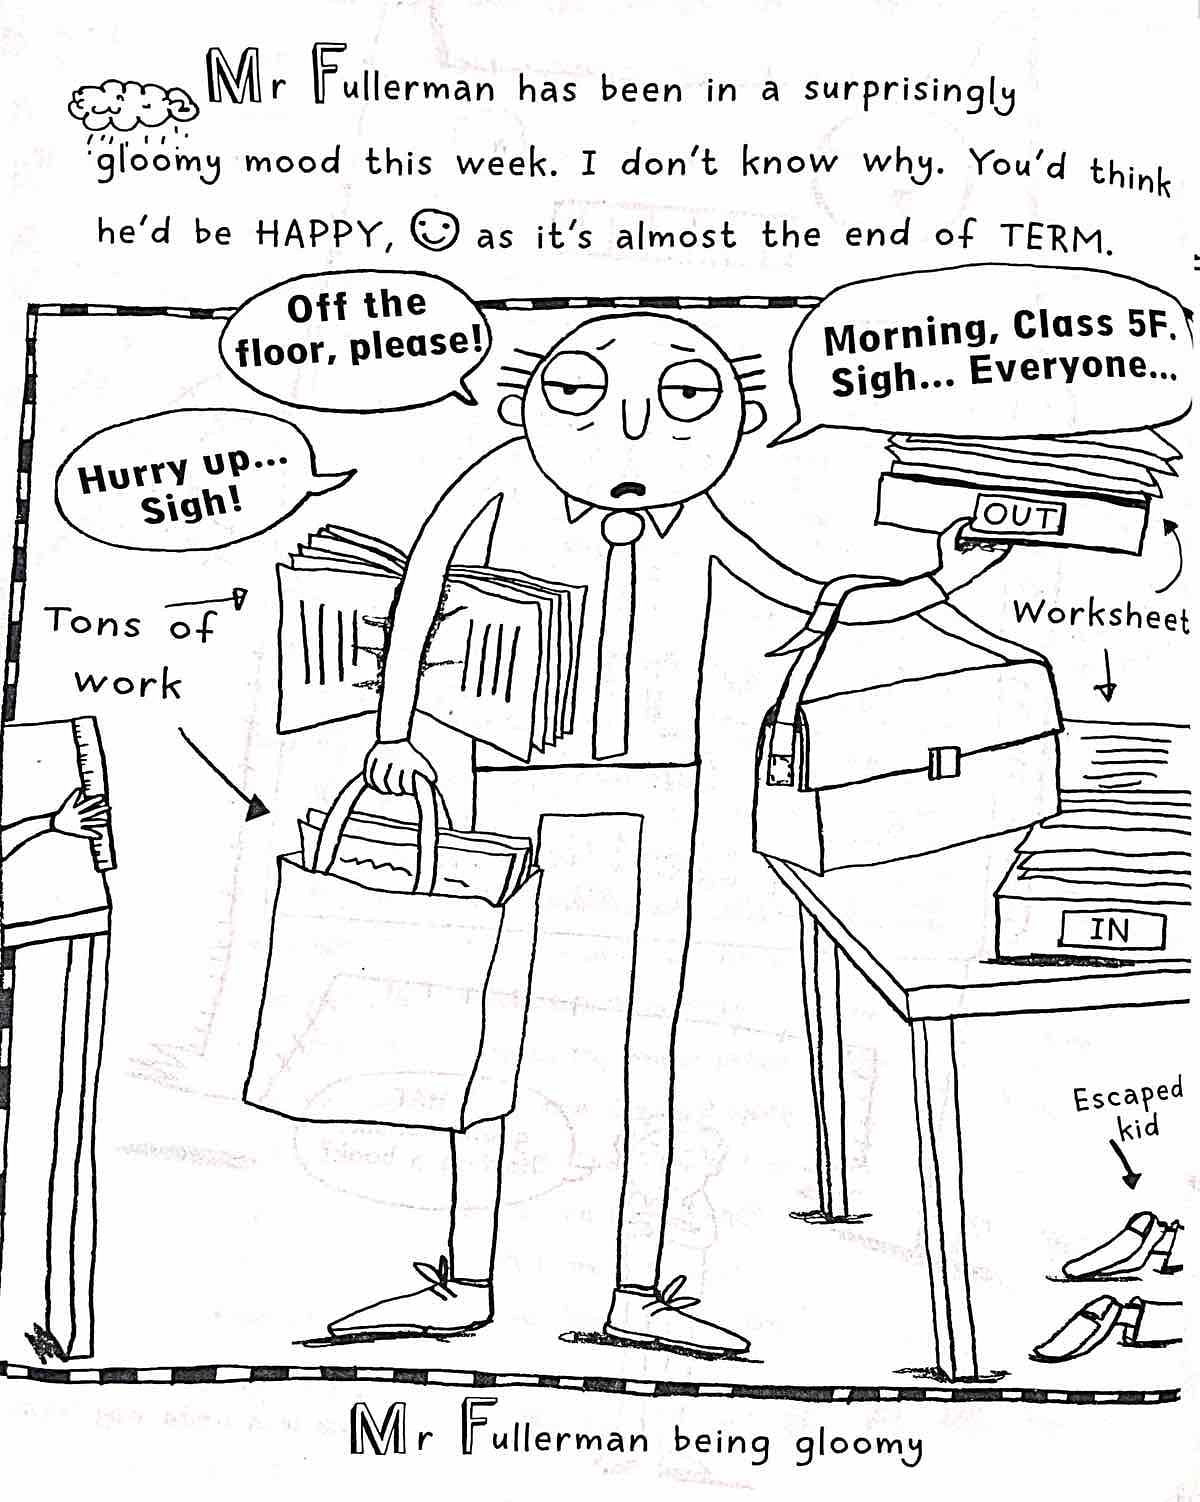 Mr Fullerman has been in a surprisingly
gloomy mood this week. I don't know why. You'd think
he'd be HAPPY, as it's almost the end of TERM.
Off the
floor, please!
Morning, Class 5F.
Sigh... Everyone...
Hurry up...
Sigh!
OUT
Tons of
work
Worksheet
IN
Escaped
kid
Mr Fullerman being gloomy